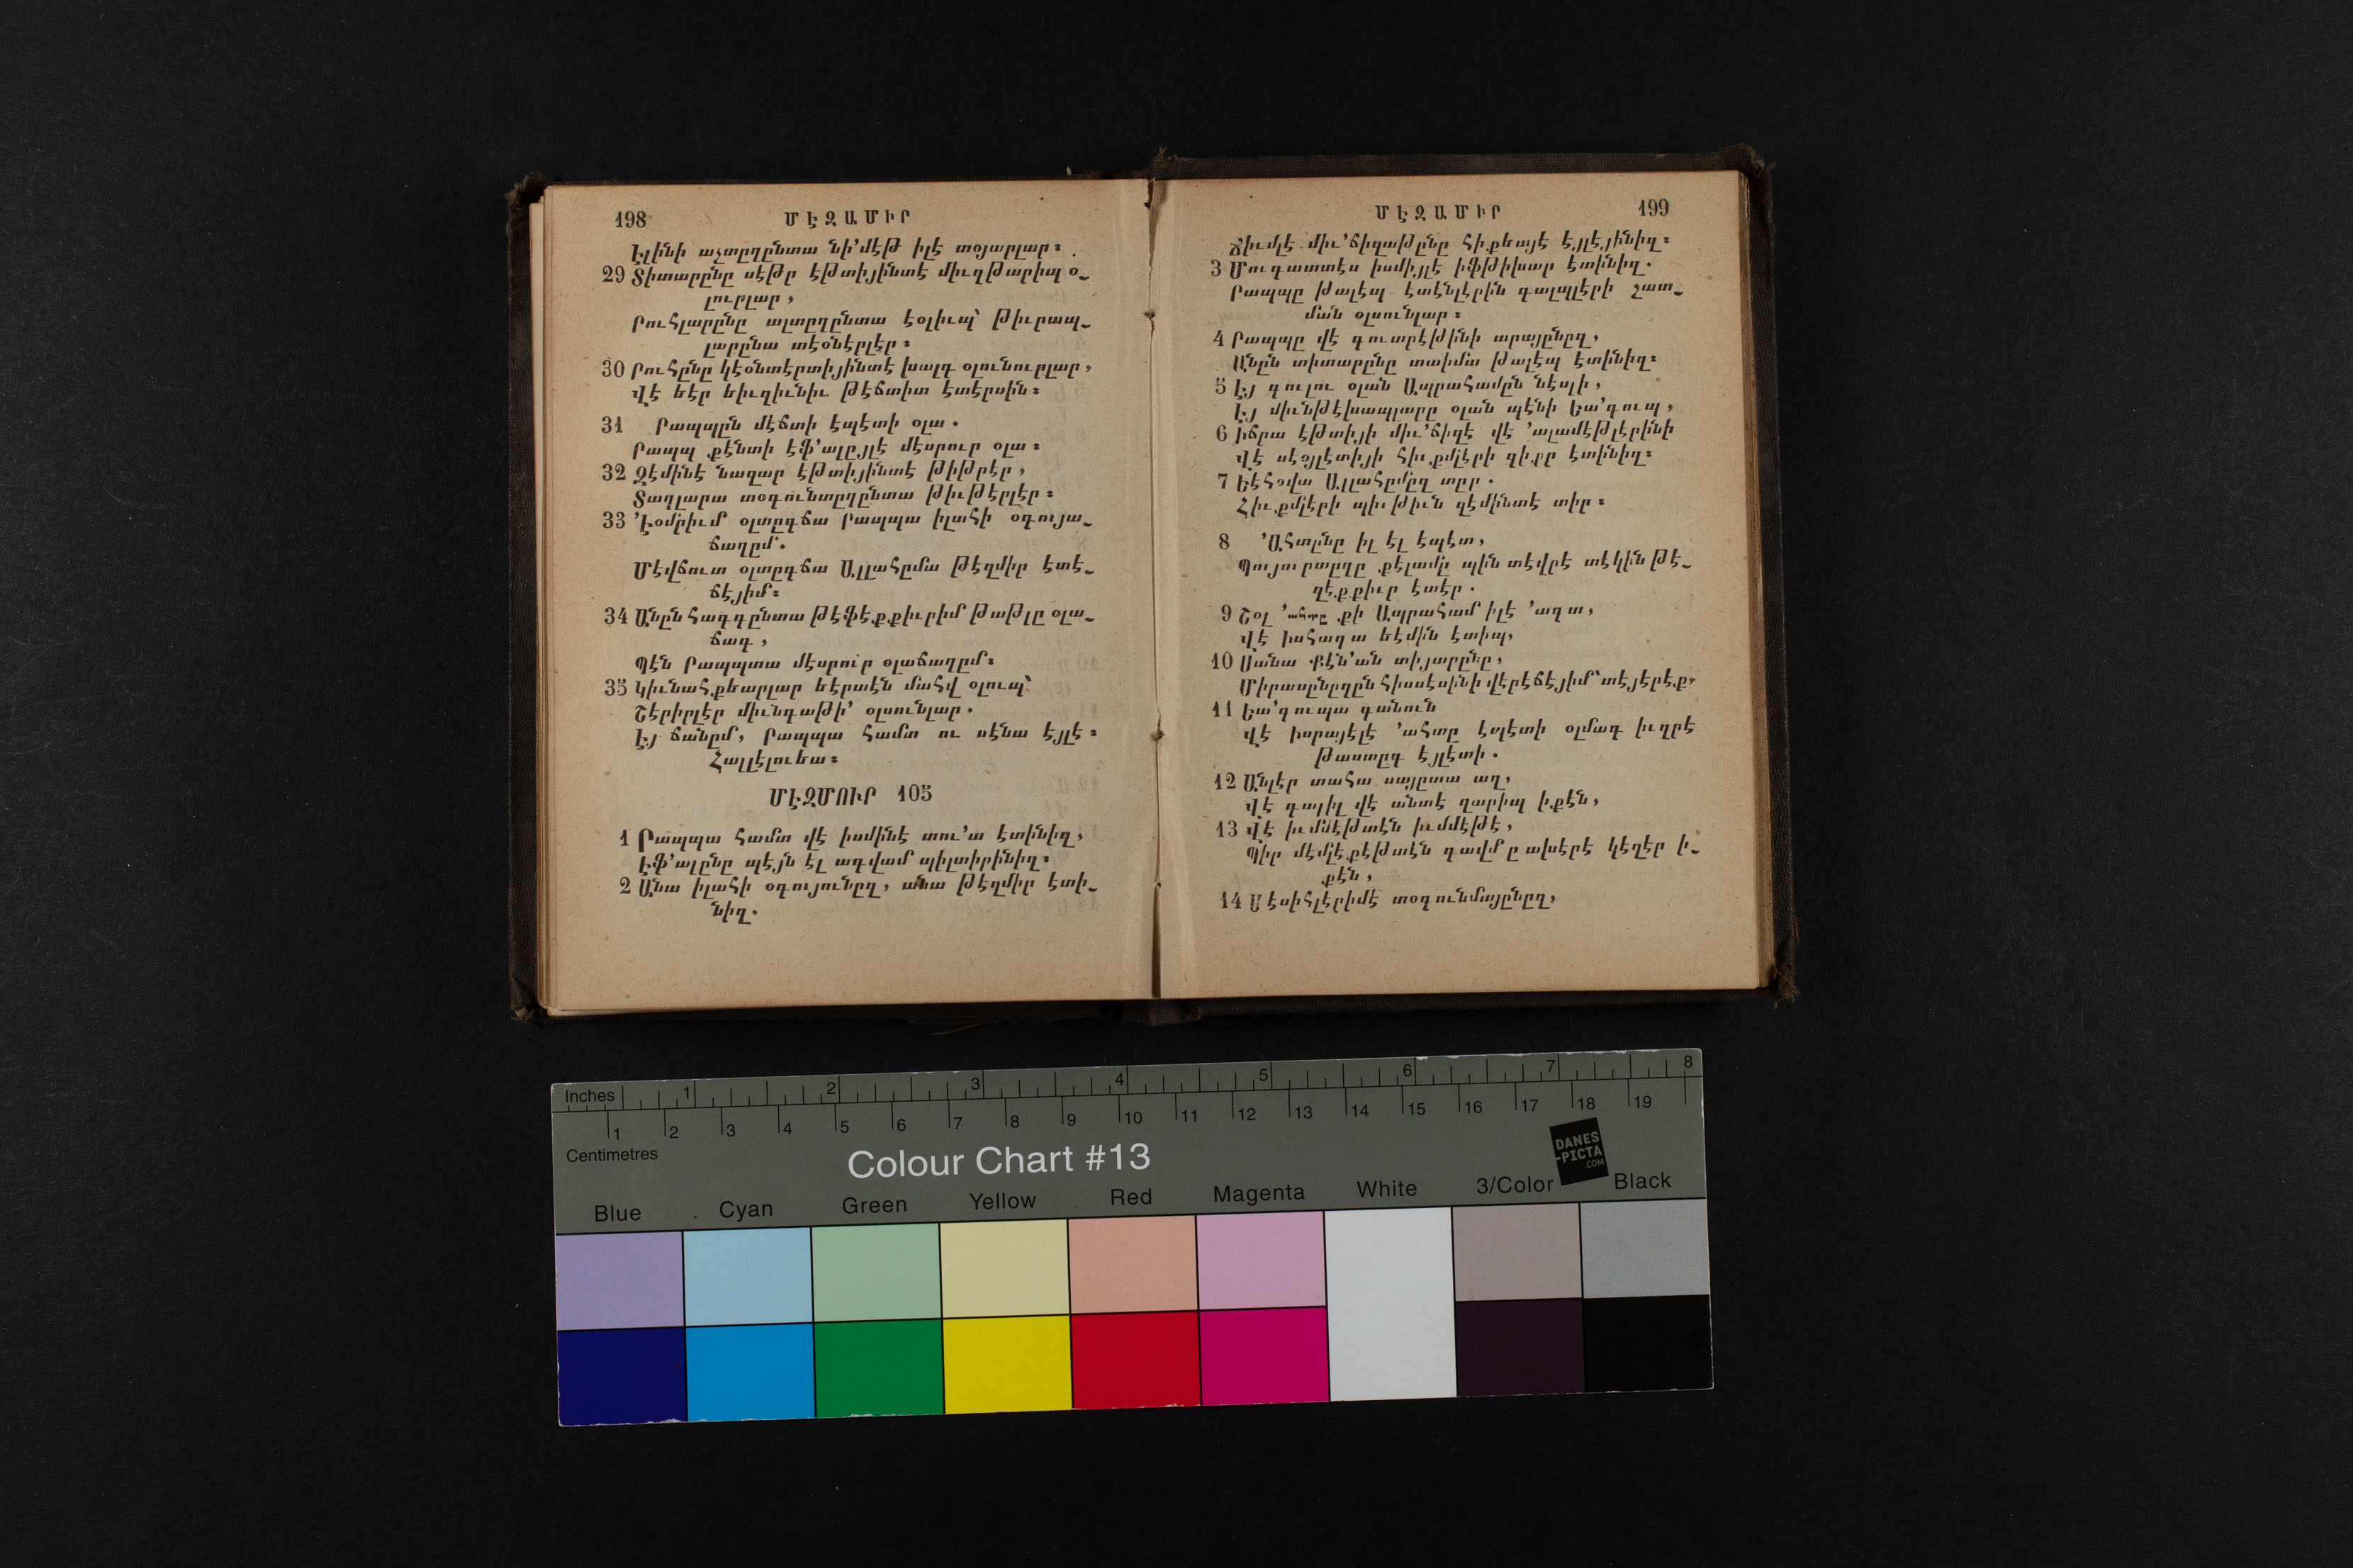 198 ՄԷԶԱՄԻՐ
Էլինի աչտըղընտա նի՛մէթ իլէ տօյարլար։
29 Տիտարընը սէթր էթտիյինտէ միւզթարիպ օ֊
լուրլար,
Րուհլարընը ալտըղընտա էօլիւպ՝ թիւրապ֊
լարընա տէօնէրլէր։
30 Րուհընը կէօնտէրտիյինտէ խալգ օլունուրլար,
Վէ եէր եիւզիւնիւ թէճտիտ էտէրսին։
31 Րապպըն մէճտի էպէտի օլա.
Րապպ քէնտի էֆ՚ալըյլէ մէսրուր օլա։
32 Զէմինէ նազար էթտիյինտէ թիթրէր,
Տաղլարա տօգունտըղընտա թիւթէրլէր։
33 ՚Էօմրիւմ օլտըգճա Րապպա իլահի օգույա֊
ճաղըմ.
Մէվճուտ օլտըգճա Ալլահըմա թէզմիր էտէ֊
ճէյիմ։
34 Անըն հագգընտա թէֆէքքիւրիմ թաթլը օլա֊
ճագ,
Պէն Րապպտա մէսրուր օլաճաղըմ։
35 Կիւնահքեարլար եէրտէն մահվ օլուպ՝
Շէրիրլէր միւնգաթի՛ օլսունլար.
Էյ ճանըմ, Րապպա համտ ու սէնա էյլէ։
Հալլէլուեա։
ՄԷԶՄՈՒՐ 105
1 Րապպա համտ վէ իսմինէ տու՛ա էտինիզ,
Էֆ՚ալընը պէյն էլ ագվամ պիլտիրինիզ։
2 Անա իլահի օգույունըզ, անա թէզմիր էտի֊
նիզ.
ՄԷԶԱՄԻՐ 199
Ճիւմլէ միւ՛ճիզաթընը հիքեայէ էյլէյինիզ։
3 Մուգատտէս իսմիյլէ իֆթիխար էտինիզ.
Րապպը թալէպ էտէնլէրին գալպլէրի շատ֊
ման օլսունլար։
4 Րապպը վէ գուտրէթինի արայընըզ,
Անըն տիտարընը տաիմա թալէպ էտինիզ։
5 Էյ գուլու օլան Ապրահամըն նէսլի,
Էյ միւնթէխապլարը օլան պէնի Եա՛գուպ,
6 Իճրա էթտիյի միւ՛ճիզէ վէ ՚ալամէթլէրինի
Վէ սէօյլէտիյի հիւքմլէրի զիքր էտինիզ։
7 Եէհօվա Ալլահըմըզ տըր.
Հիւքմլէրի պիւթիւն զէմինտէ տիր։
8 ՚Ահտընը իլ էլ էպէտ,
Պույուրտըղը քէլամը պին տէվրէ տէկին թէ֊
զէքքիւր էտէր.
9 Շօլ ՚ահտը քի Ապրահամ իլէ ՚ագտ,
Վէ Իսհագա եէմին էտիպ,
10 Սանա Քէն՚ան տիյարընը,
Միրասընըզըն հիսսէսինի վէրէճէյիմ՝ տէյէրէք,
11 Եա՛գուպա գանուն
Վէ Իսրայէլէ ՚ահտը էպէտի օլմագ իւզրէ
թաստըգ էյլէտի.
12 Անլէր տահա սայըտա ազ,
Վէ գալիլ վէ անտէ ղարիպ իքէն,
13 Վէ իւմմէթտէն իւմմէթէ,
Պիր մէմլէքէթտէն գավմը ախէրէ կէզէր ի֊
քէն,
14 Մէսիհլէրիմէ տօգունմայընըզ,
Inches 1 2 3 4 5 6 7 8
1 2 3 4 5 6 7 8 9 10 11 12 13 14 15 16 17 18 19
Centimetres
Colour Chart #13
DANES
-PICTA
.COM
Blue Cyan Green Yellow Red Magenta White 3/Color Black